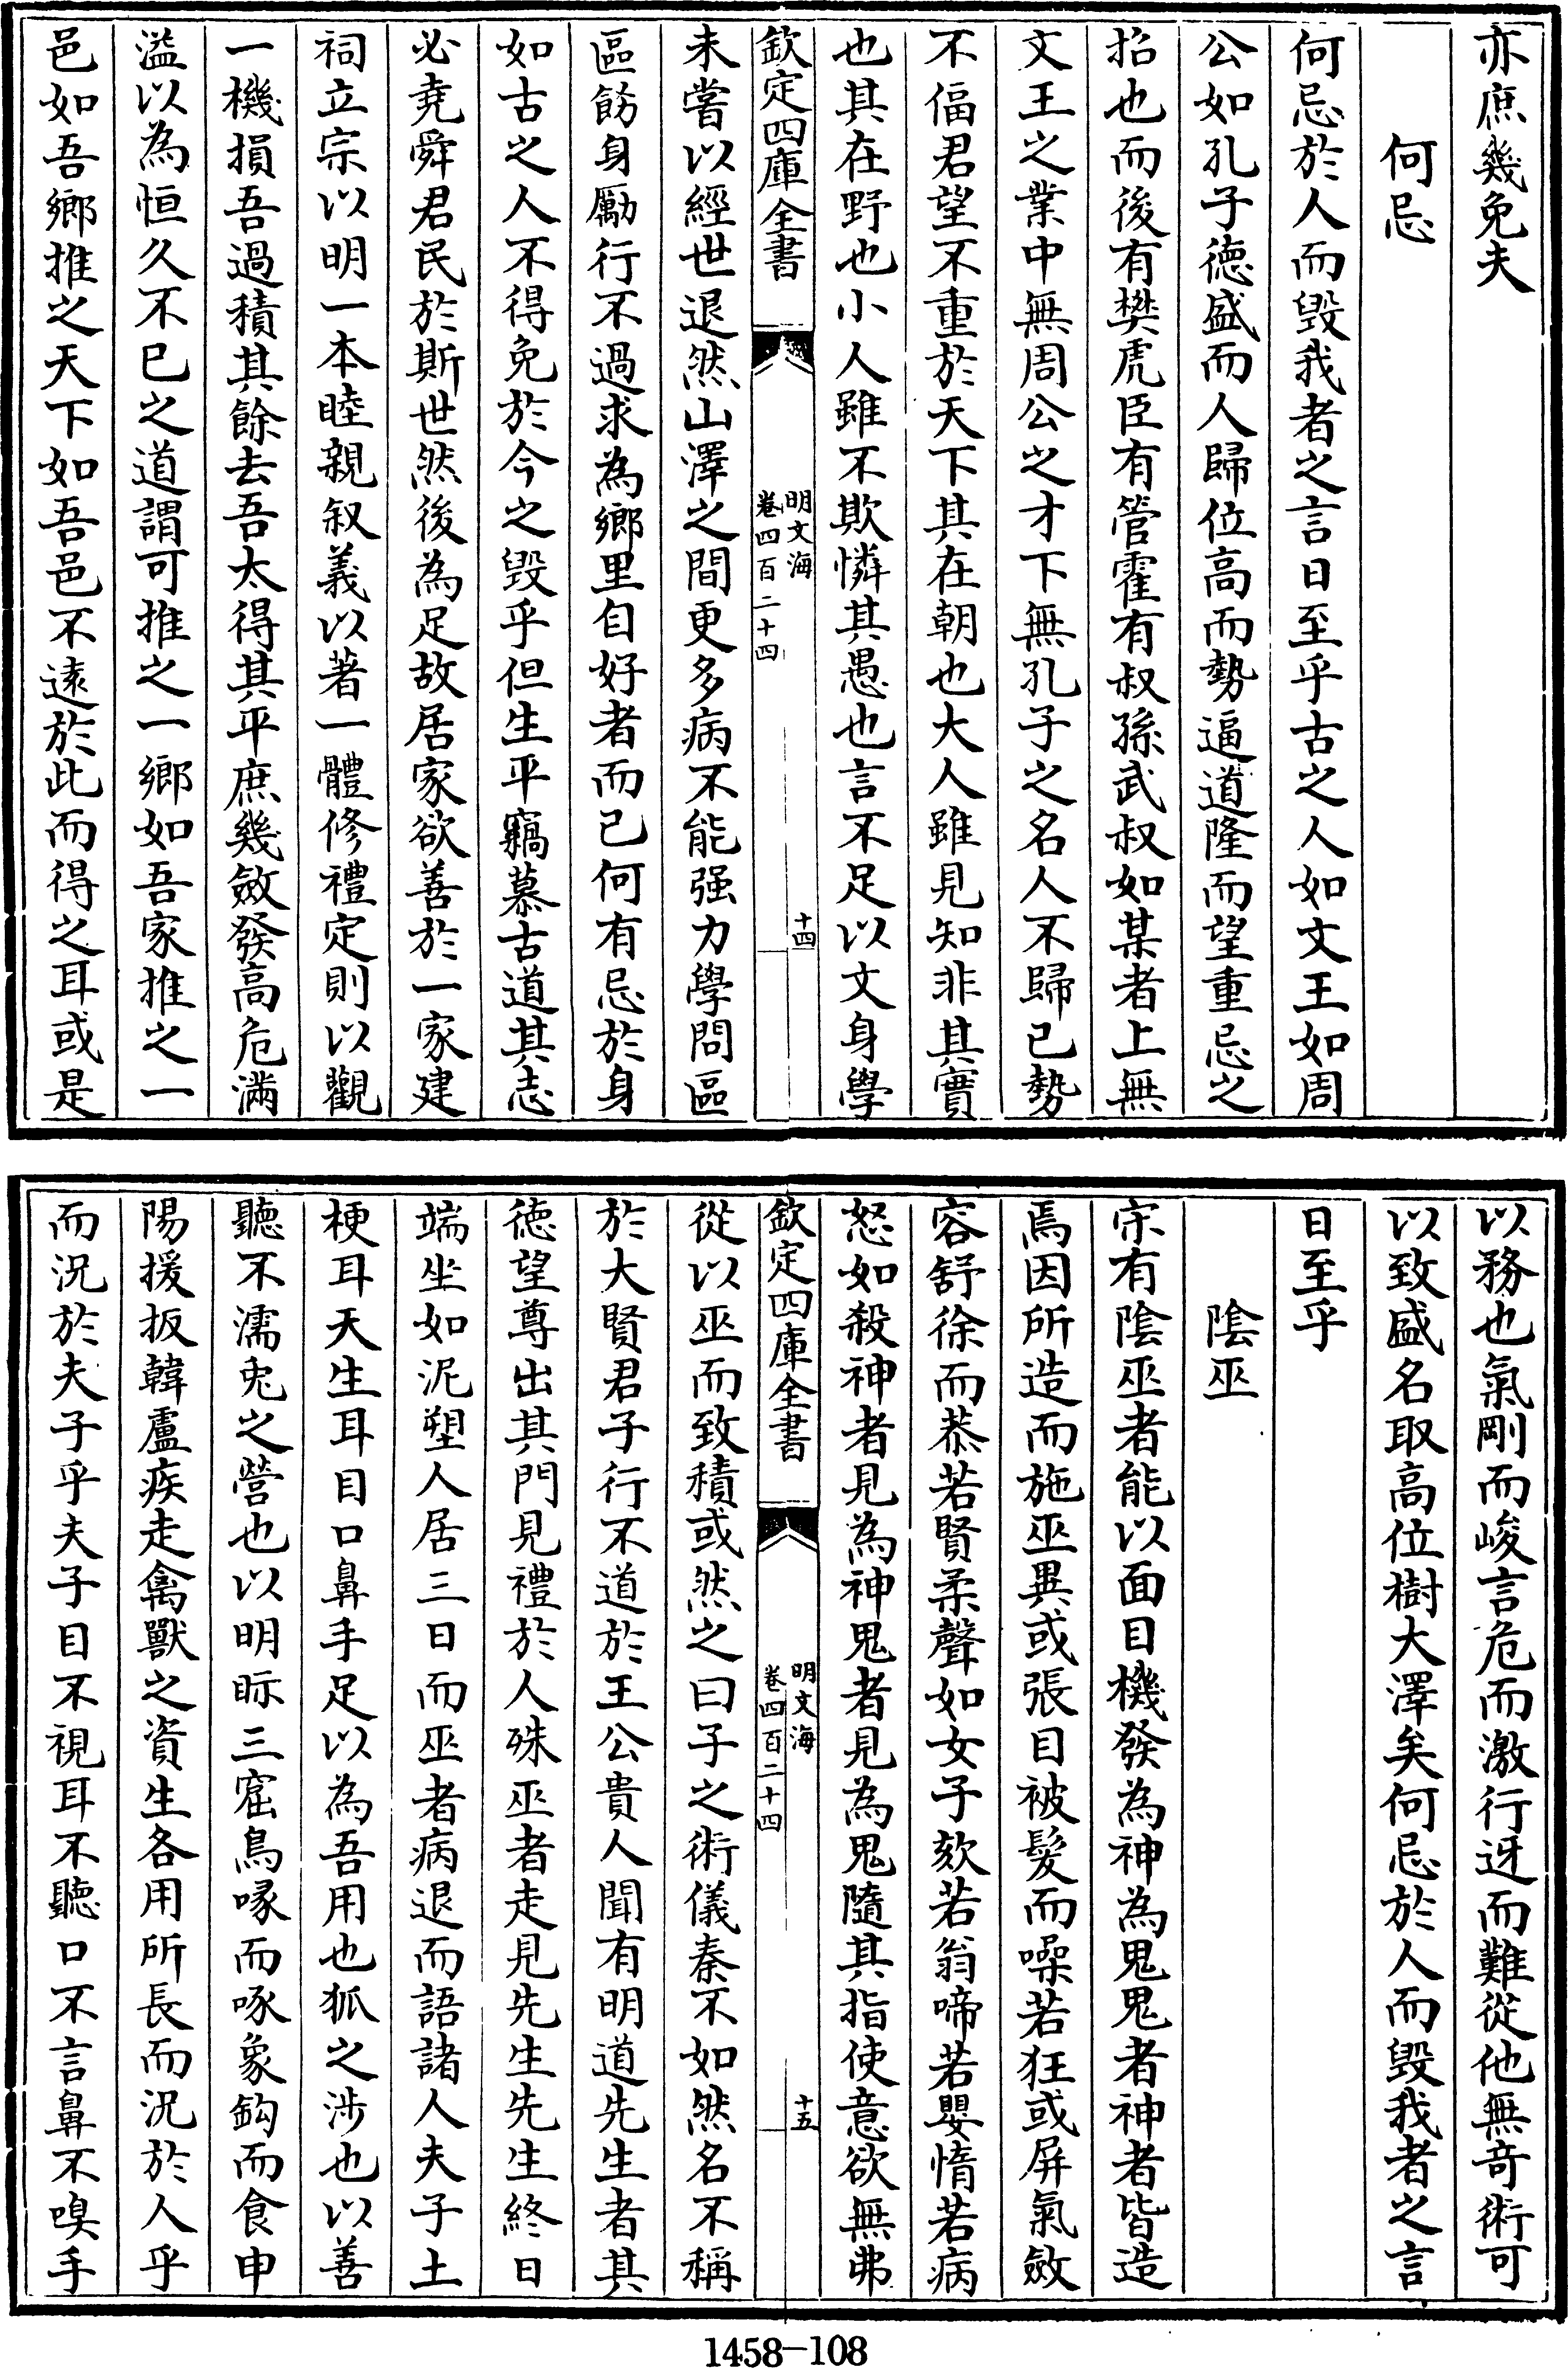 亦庶幾免夫
何忌
何忌於人而毀我者之言日至乎古之人如文王如周
公如孔子德盛而人歸位高而勢逼道隆而望重忌之
招也而後有樊虎臣有管霍有叔孫武叔如某者上無
文王之業中無周公之才下無孔子之名人不歸已勢
不偪君望不重於天下其在朝也大人雖見知非其實
也其在野也小人雖不欺憐其愚也言不足以文身學
欽定四庫全書
明文海
卷四百二十四
十四
未嘗以經世退然山澤之間更多病不能强力學問區
區飭身勵行不過求為鄉里自好者而已何有忌於身
如古之人不得免於今之毀乎但生平竊慕古道其志
必堯舜君民於斯世然後為足故居家欲善於一家建
祠立宗以明一本睦親叙義以著一體修禮定則以觀
一機損吾過積其餘去吾太得其平庶幾斂發高危滿
溢以為恒久不已之道謂可推之一鄉如吾家推之一
邑如吾鄉推之天下如吾邑不遠於此而得之耳或是
以務也氣剛而峻言危而激行迂而難從他無奇術可
以致盛名取高位樹大澤矣何忌於人而毀我者之言
日至乎
陰巫
宋有陰巫者能以面目機發為神為鬼鬼者神者皆造
焉因所造而施巫異或張目被髮而噪若狂或屏氣斂
容舒徐而恭若賢柔聲如女子欬若翁啼若嬰惰若病
怒如殺神者見為神鬼者見為鬼隨其指使意欲無弗
欽定四庫全書
明文海
卷四百二十四
十五
從以巫而致積或然之曰子之術儀秦不如然名不稱
於大賢君子行不道於王公貴人聞有明道先生者其
德望尊出其門見禮於人殊巫者走見先生先生終日
端坐如泥塑人居三日而巫者病退而語諸人夫子土
梗耳天生耳目口鼻手足以為吾用也狐之涉也以善
聽不濡兎之營也以明眎三窟鳥喙而啄象鉤而食申
陽援扳韓盧疾走禽獸之資生各用所長而況於人乎
而況於夫子乎夫子目不視耳不聽口不言鼻不嗅手
1458-108